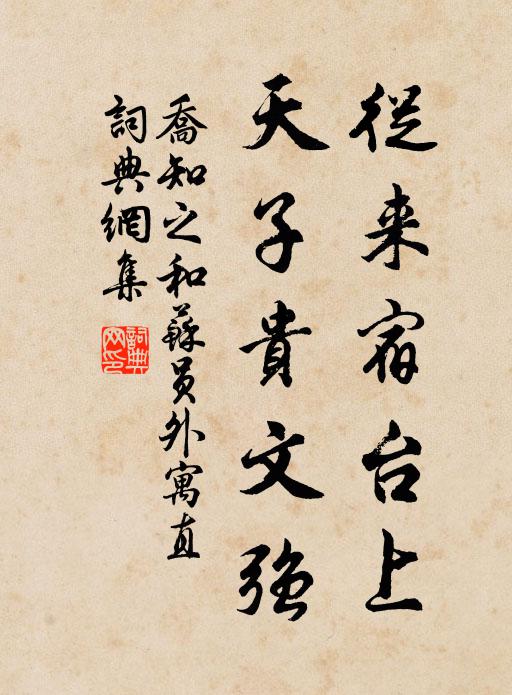 從来宿台上
天子貴文強
喬知之和蘇員外寓直
詞典網集
詞典网印